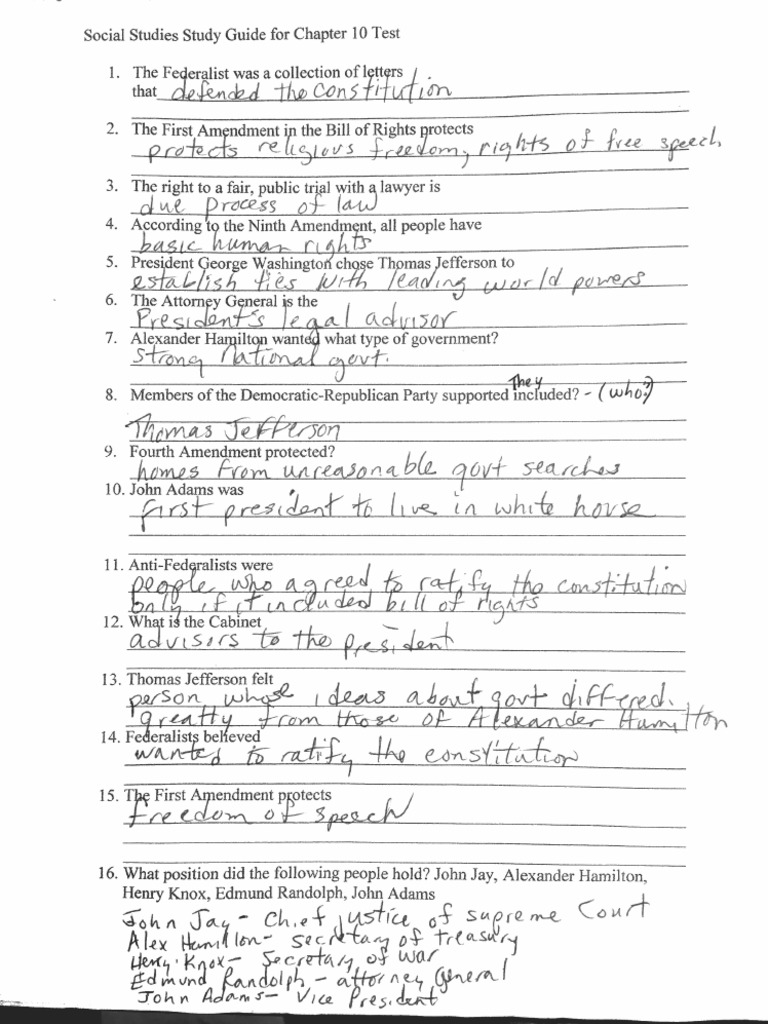 Social Studies Study Guide for Chapter 10 Test
1. The Federalist was a collection of letters
that defended the constitution
2. The First Amendment in the Bill of Rights protects
protects religious freedom, rights of free speech,
3. The right to a fair, public trial with a lawyer is
due process of law
4. According to the Ninth Amendment, all people have
basic human rights
5. President George Washington chose Thomas Jefferson to
establish ties with leading world powers
6. The Attorney General is the
President's legal advisor
7. Alexander Hamilton wanted what type of government?
Strong national govt.
They
8. Members of the Democratic-Republican Party supported included? - (who?)
Thomas Jefferson
9. Fourth Amendment protected?
homes from unreasonable govt searches
10. John Adams was
first president to live in white house
11. Anti-Federalists were
people who agreed to ratify the constitution
only if it included bill of rights
12. What is the Cabinet
advisors to the president
13. Thomas Jefferson felt
person whose ideas about govt differed
greatty from those of Alexander Hamilton
14. Federalists believed
wanted to ratify the constitution
15. The First Amendment protects
freedom of speech
16. What position did the following people hold? John Jay, Alexander Hamilton,
Henry Knox, Edmund Randolph, John Adams
John Jay - Chief justice of supreme Court
Alex Hamillon - secretary of treasury
Henry Knox - Secretary of war
Edmund Randolph - attorney General
John Adams - Vice President